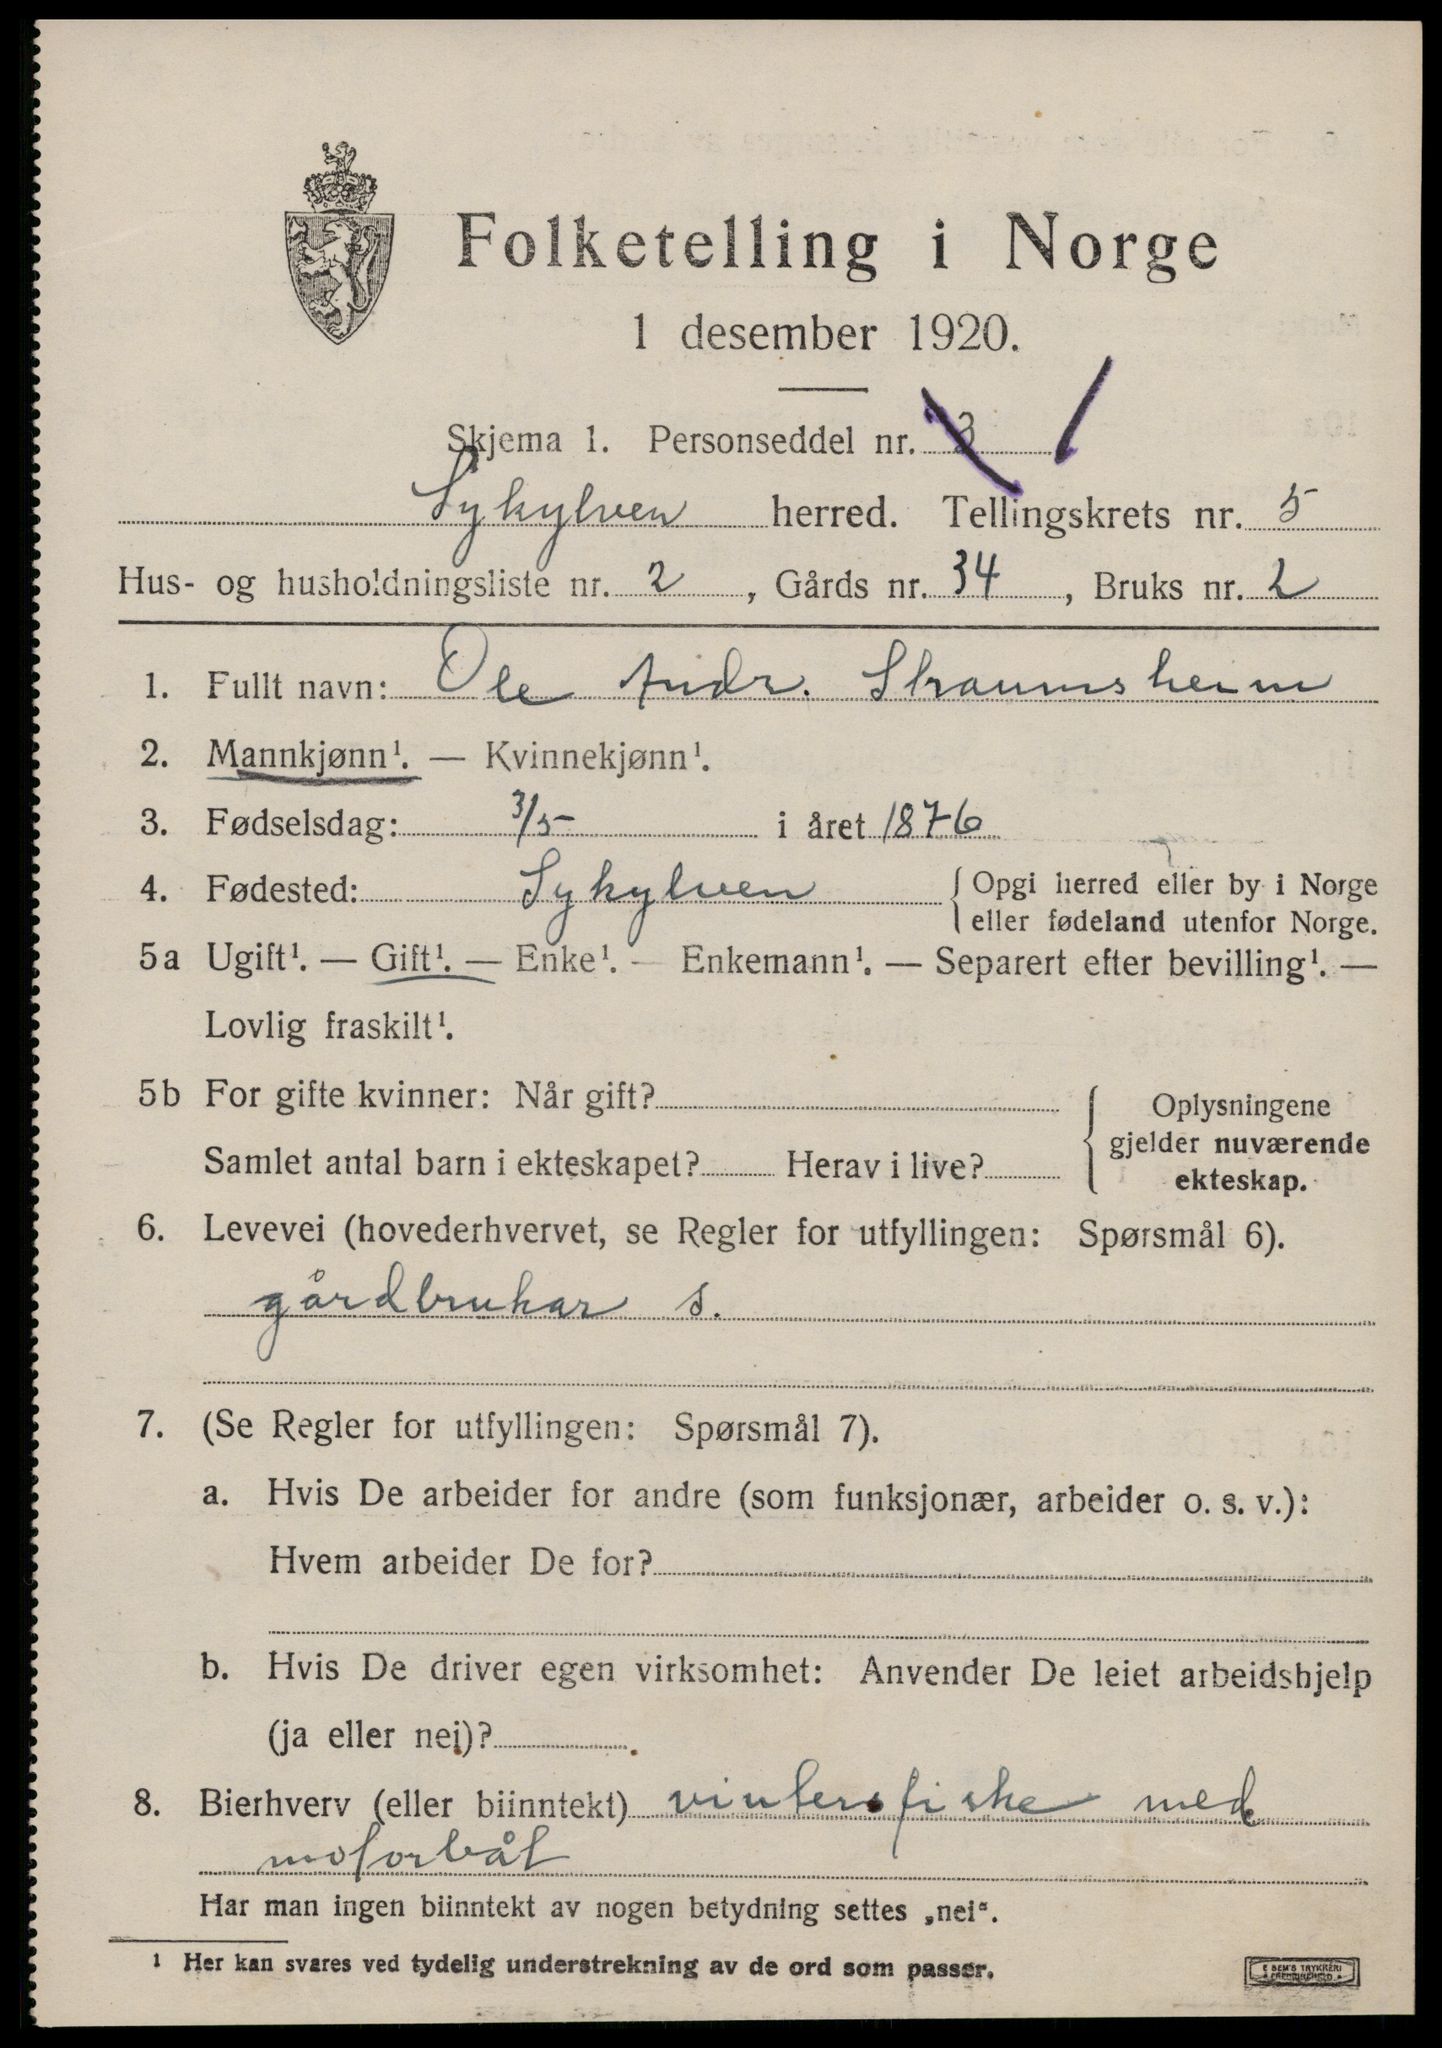 Folketelling i Norge
1 desember 1920.
Skjema 1. Personseddel nr. 3 1
Sykylven herred. Tellingskrets nr. 5
Hus- og husholdningsliste nr. 2, Gårds nr. 34, Bruks nr. 2
1. Fullt navn: Ole Andr. Straumsheim
2. Mannkjønn¹. — Kvinnekjønn¹.
3. Fødselsdag: 3/5 i året 1876
4. Fødested: Sykylven { Opgi herred eller by i Norge
eller fødeland utenfor Norge.
5a Ugift¹. — Gift¹. — Enke¹. — Enkemann¹. — Separert efter bevilling¹. —
Lovlig fraskilt¹.
5b For gifte kvinner: Når gift? { Oplysningene
gjelder nuværende
Samlet antal barn i ekteskapet? Herav i live? ekteskap.
6. Levevei (hovederhvervet, se Regler for utfyllingen: Spørsmål 6).
gårdbrukar s.
7. (Se Regler for utfyllingen: Spørsmål 7).
a. Hvis De arbeider for andre (som funksjonær, arbeider o. s. v.):
Hvem arbeider De for?
b. Hvis De driver egen virksomhet: Anvender De leiet arbeidshjelp
(ja eller nei)?
8. Bierhverv (eller biinntekt) vintersfiske med
motorbåt
Har man ingen biinntekt av nogen betydning settes „nei“.
1 Her kan svares ved tydelig understrekning av de ord som passer.
E SEM'S TRYKKERI
FREDRIKSHALD